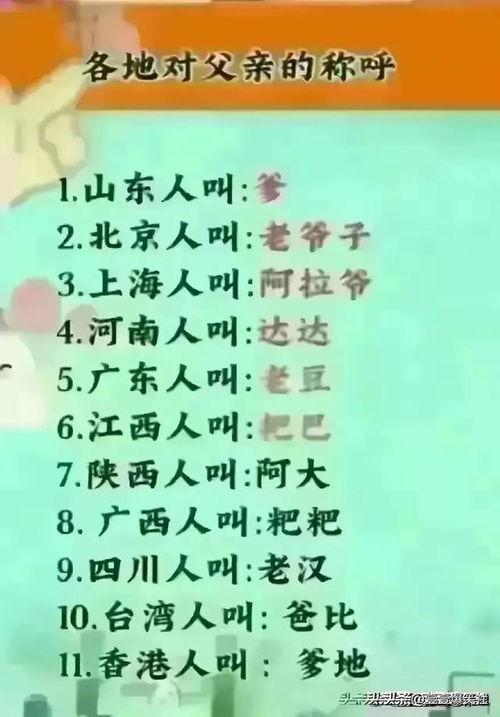 各地对父亲的称呼
1.山东人叫:爹
2.北京人叫:老爷子
3.上海人叫:阿拉爷
4.河南人叫:达达
5.广东人叫:老豆
6.江西人叫:粑巴
7.陕西人叫:阿大
8.广西人叫:粑粑
9.四川人叫:老汉
10.台湾人叫:爸比
11.香港人叫:爹地